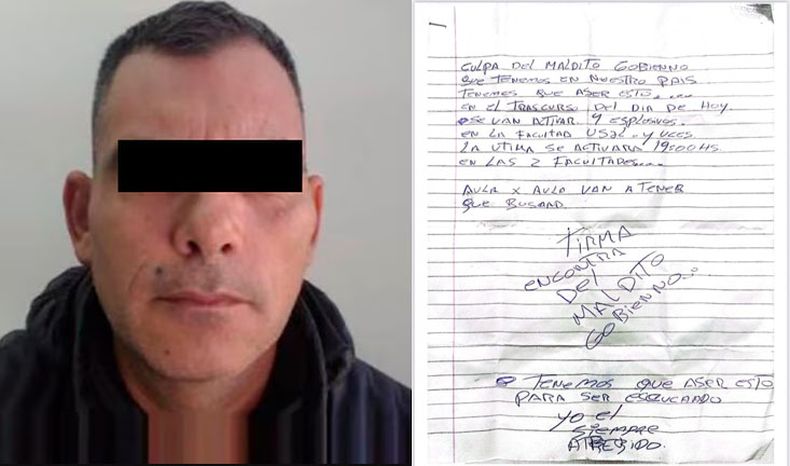 CULPA DEL MALDITO GOBIENNO
QUE TENEMOS EN NUESTRO PAIS
TENEMOS QUE ASER ESTO.....
EN EL TRASCURSO DEL DIA DE HOY.
SE VAN ACTIVAR. 9 ESPLOSIVOS.
EN LA FACULTAD USAL. Y UCES
LA UTIMA SE ACTIVARA 19:00 HS.
EN LAS 2 FACULTADES....
AULA X AULA VAN A TENER
QUE BUSCAR.
FIRMA
ENCONTRA
DEL
MALDITO
GOBIENNO...
TENEMOS QUE ASER ESTO
PARA SER ESCUCHADO
YO EL
SIEMPRE
ATREBIDO.